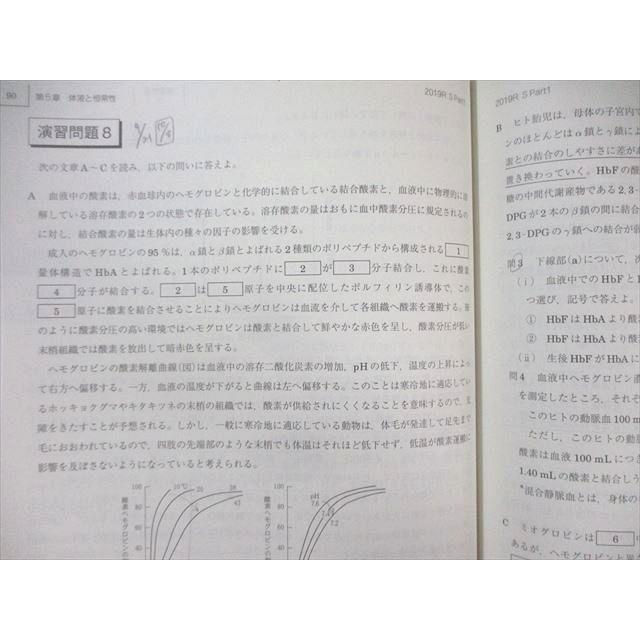 90 第5章 体液と恒常性
2019R S Part1
演習問題8
次の文章A〜Cを読み，以下の問いに答えよ。
A 血液中の酸素は，赤血球内のヘモグロビンと化学的に結合している結合酸素と，血液中に物理的に溶
解している溶存酸素の2つの状態で存在している。溶存酸素の量はおもに血中酸素分圧に規定されるの
に対し，結合酸素の量は生体内の種々の因子の影響を受ける。
成人のヘモグロビンの95％は，α鎖とβ鎖とよばれる2種類のポリペプチドから構成される 1
量体構造でHbAとよばれる。1本のポリペプチドに 2 が 3 分子結合し，これに酸素
4 分子が結合する。 2 は 5 原子を中央に配位したポルフィリン誘導体で，この
5 原子に酸素を結合させることによりヘモグロビンは血流を介して各組織へ酸素を運搬する。肺
のように酸素分圧の高い環境ではヘモグロビンは酸素と結合して鮮やかな赤色を呈し，酸素分圧が低い
末梢組織では酸素を放出して暗赤色を呈する。
ヘモグロビンの酸素解離曲線(図)は血液中の溶存二酸化炭素の増加，pHの低下，温度の上昇によっ
て右方へ偏移する。一方，血液の温度が下がると曲線は左へ偏移する。このことは寒冷地に適応してい
るホッキョクグマやキタキツネの末梢の組織では，酸素が供給されにくくなることを意味するので，支
障をきたすことが予想される。しかし，一般に寒冷地に適応している動物は，体毛が発達して足先まで
毛におおわれているので，四肢の先端部のような末梢でも体温はそれほど低下せず，低温が酸素運搬に
影響を及ぼさないようになっていると考えられる。
100
80
60
40
10℃ 20 38
43
酸素ヘモグロビンの
100
80
60
40
pH
7.6
7.4
7.2
酸素ヘモグロビンの
2019R S Part1
B ヒト胎児は，母体の子宮内で
ンのほとんどはα鎖とγ鎖によ
素との結合のしやすさに差があ
置き換わっていく。HbFの酸
糖の中間代謝産物である2,3-
DPGが2本のβ鎖の間に結合
2,3-DPGのγ鎖への結合が弱
問3 下線部(a)について，次
(ⅰ) 血液中でのHbFとH
つ選び，記号で答えよ。
① HbFはHbAより酸
② HbFはHbAより酸
(ⅱ) 生後HbFがHbAに
問4 血液中ヘモグロビン濃
を測定したところ，それぞ
このヒトの動脈血100 m
ただし，このヒトの動
酸素は血液100 mLにつき
1.40 mLの酸素と結合しう
*混合静脈血とは，身体の
C ミオグロビンは 6
あるが，ヘモグロビンと異